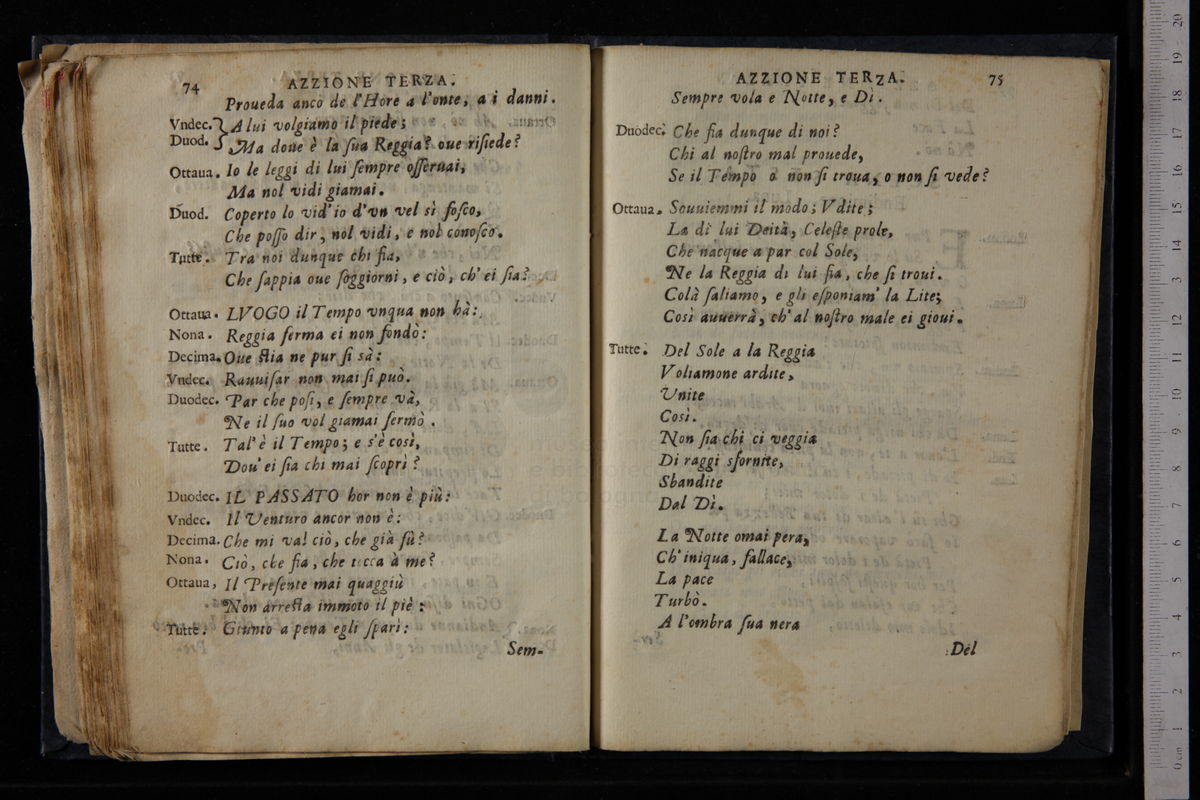 74 AZZIONE TERZA.
Proueda anco de l'Hore a l'onte, a i danni.
Vndec. A lui volgiamo il piede;
Duod. Ma doue è la ſua Reggia? oue riſiede?
Ottaua. Io le leggi di lui ſempre oſſeruai,
Ma nol vidi giamai.
Duod. Coperto lo vid'io d'vn vel sì foſco,
Che poſſo dir, nol vidi, e nol conoſco.
Tutte. Tra noi dunque chi fia,
Che ſappia oue ſoggiorni, e ciò, ch'ei ſia?
Ottaua. LVOGO il Tempo vnqua non hà:
Nona. Reggia ferma ei non fondò:
Decima. Oue ſtia ne pur ſi sà:
Vndec. Rauuiſar non mai ſi può.
Duodec. Par che poſi, e ſempre và,
Ne il ſuo vol giamai fermò.
Tutte. Tal'è il Tempo; e s'è così,
Dou' ei ſia chi mai ſcoprì?
Duodec. IL PASSATO hor non è più:
Vndec. Il Venturo ancor non è:
Decima. Che mi val ciò, che già fù?
Nona. Ciò, che fia, che tocca à me?
Ottaua, Il Preſente mai quaggiù
Non arreſta immoto il piè:
Tutte. Giunto a pena egli ſparì:
Sem-
AZZIONE TERZA. 75
Sempre vola e Notte, e Dì.
Duodec. Che fia dunque di noi?
Chi al noſtro mal prouede,
Se il Tempo o non ſi troua, o non ſi vede?
Ottaua. Souuiemmi il modo; Vdite;
La di lui Deità, Celeſte prole,
Che nacque a par col Sole,
Ne la Reggia di lui fia, che ſi troui.
Colà ſaliamo, e gli eſponiam' la Lite;
Così auuerrà, ch'al noſtro male ei gioui.
Tutte. Del Sole a la Reggia
Voliamone ardite,
Unite
Così.
Non ſia chi ci veggia
Di raggi sfornite,
Sbandite
Dal Dì.
La Notte omai pera,
Ch'iniqua, fallace,
La pace
Turbò.
A l'ombra ſua nera
Del